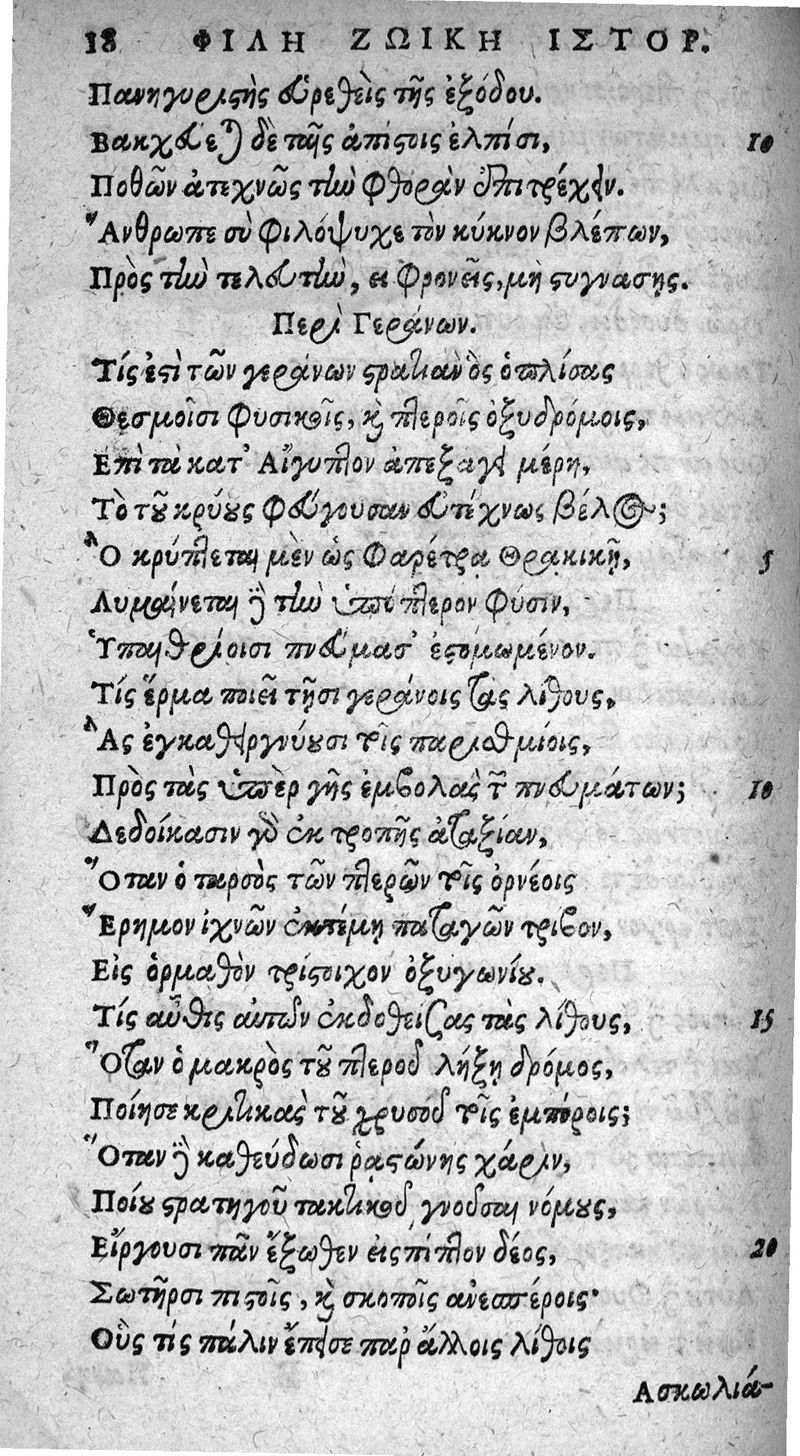 18 ΦΙΛΗ ΖΩΙΚΗ ΙΣΤΟΡ.
Πανηγυριστὴς εὑρεθεὶς τῆς ἐξόδου.
Βακχεύεται δὲ ταῖς ἀπίστοις ἐλπίσι, 10
Ποθῶν ἀτεχνῶς τὴν φθορὰν ἐπιτρέχειν.
Ἄνθρωπε σὺ φιλόψυχε τὸν κύκνον βλέπων,
Πρὸς τὴν τελευτὴν, εἰ φρονεῖς, μὴ στυγνάσης.
Περὶ Γεράνων.
Τίς ἐστὶ τῶν γεράνων στρατιὰν ὃς ὁπλίσας
Θεσμοῖσι φυσικοῖς, καὶ πτεροῖς ὀξυδρόμοις,
Επὶ τὰ κατ' Αἴγυπτον ἀπεξάγει μέρη,
Τὸ τοῦ κρύους φεύγουσαν εὐτέχνως βέλος;
Ὃ κρύπτεται μὲν ὡς φαρέτρα Θρακικῇ, 5
Λυμαίνεται δὲ τὴν ὑπόπτερον φύσιν,
Ὑπαιθρίοισι πνεύμασ' ἐστομωμένον.
Τίς ἕρμα ποιεῖ τῇσι γεράνοις τὰς λίθους,
Ἃς ἐγκαθειργνύουσι τοῖς παρισθμίοις,
Πρὸς τὰς ὑπὲρ γῆς ἐμβολὰς τῶν πνευμάτων; 10
Δεδοίκασιν γὰρ ἐκ τροπῆς ἀταξίαν,
Ὅταν ὁ ταρσὸς τῶν πτερῶν τοῖς ὀρνέοις
Ἔρημον ἰχνῶν ἐκτέμῃ παταγῶν τρίβον,
Εἰς ὁρμαθὸν τρίστοιχον ὀξυγωνίου.
Τίς αὖθις αὐτῶν ἐκδοθείσας τὰς λίθους, 15
Ὅταν ὁ μακρὸς τοῦ πτεροῦ λήξῃ δρόμος,
Ποίησε κριτικὰς τοῦ χρυσοῦ τοῖς ἐμπόροις;
Ὅταν δὲ καθεύδωσι ῥαστώνης χάριν,
Ποίου στρατηγοῦ τακτικοῦ γνοῦσαι νόμους,
Εἴργουσι πᾶν ἔξωθεν εἰσπίπτον δέος, 20
Σωτῆρσι πιστοῖς, καὶ σκοποῖς ἀνεσπέροις·
Οὓς τίς πάλιν ἔπεισε παρ' ἄλλοις λίθοις
Ασκωλιά-